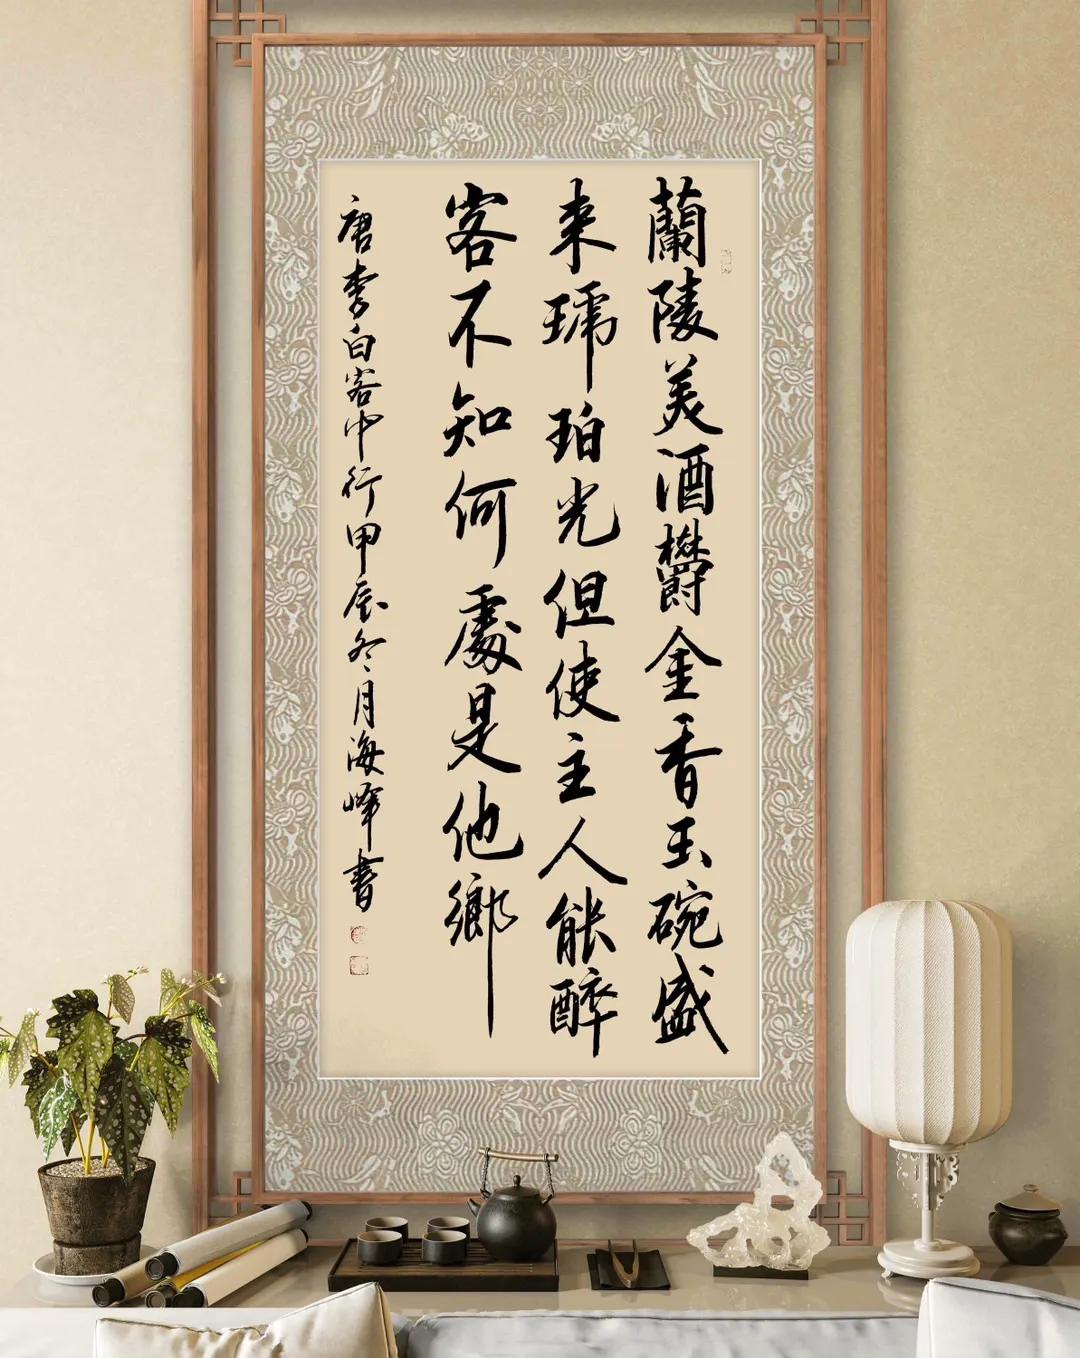 蘭陵美酒欝金香玉碗盛
来琥珀光但使主人能醉
客不知何處是他鄉
唐李白客中行甲辰冬月海峰書